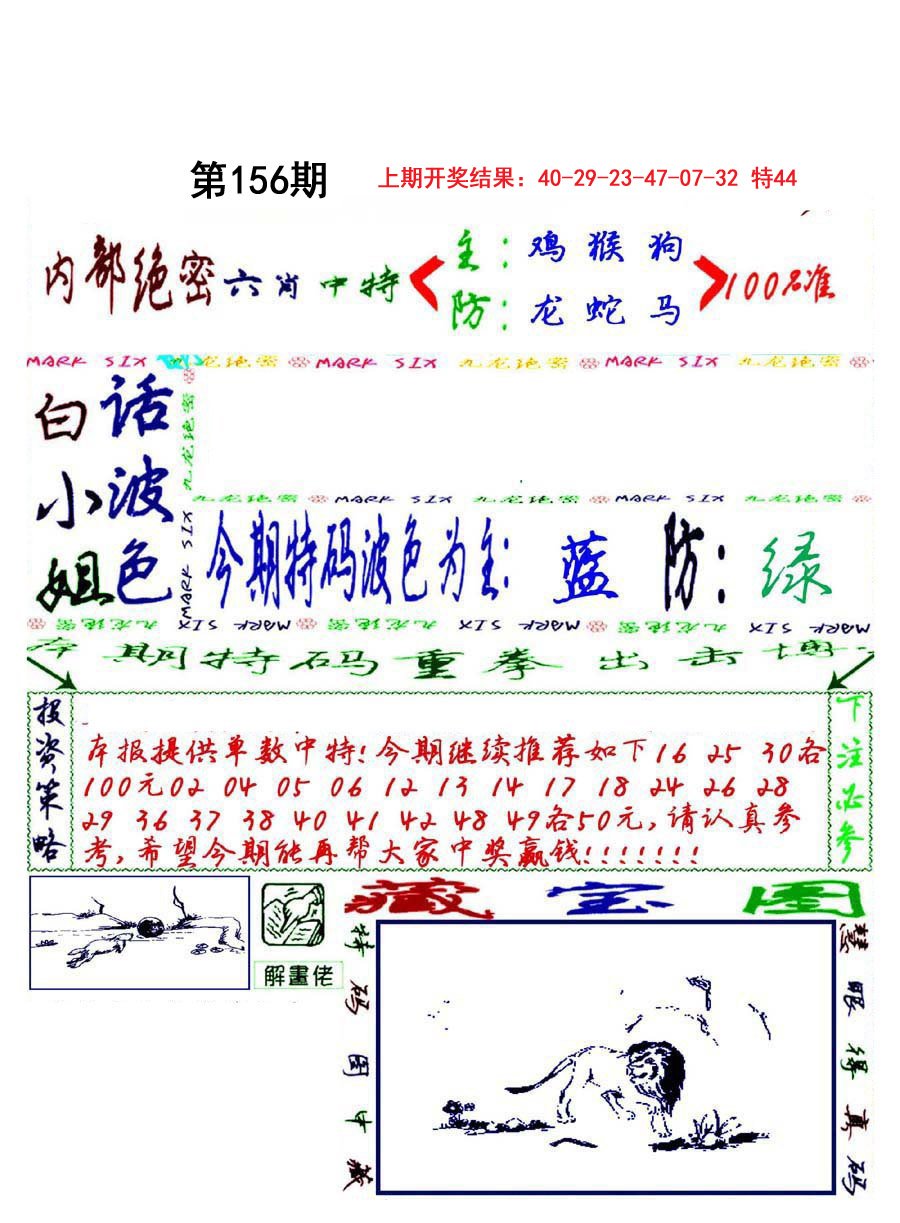 第156期
上期开奖结果：40-29-23-47-07-32 特44
内部绝密六肖中特
主：鸡猴狗
防：龙蛇马
100%准
MARK SIX 九龙绝密 MARK SIX 九龙绝密 MARK SIX 九龙绝密
九龙绝密
MARK SIX
白话
小波
姐色
九龙绝密 MARK SIX 九龙绝密 MARK SIX 九龙绝密
今期特码波色为主：蓝 防：绿
九龙绝密 MARK SIX 九龙绝密 MARK SIX 九龙绝密 MARK SIX
本期特码重拳出击博
投资策略
本报提供单数中特!今期继续推荐如下16 25 30各
100元02 04 05 06 12 13 14 17 18 24 26 28
29 36 37 38 40 41 42 48 49各50元,请认真参
考,希望今期能再帮大家中奖赢钱!!!!!!!
下注必参
解畫佬
藏宝图
特码图中藏
慧眼得真码